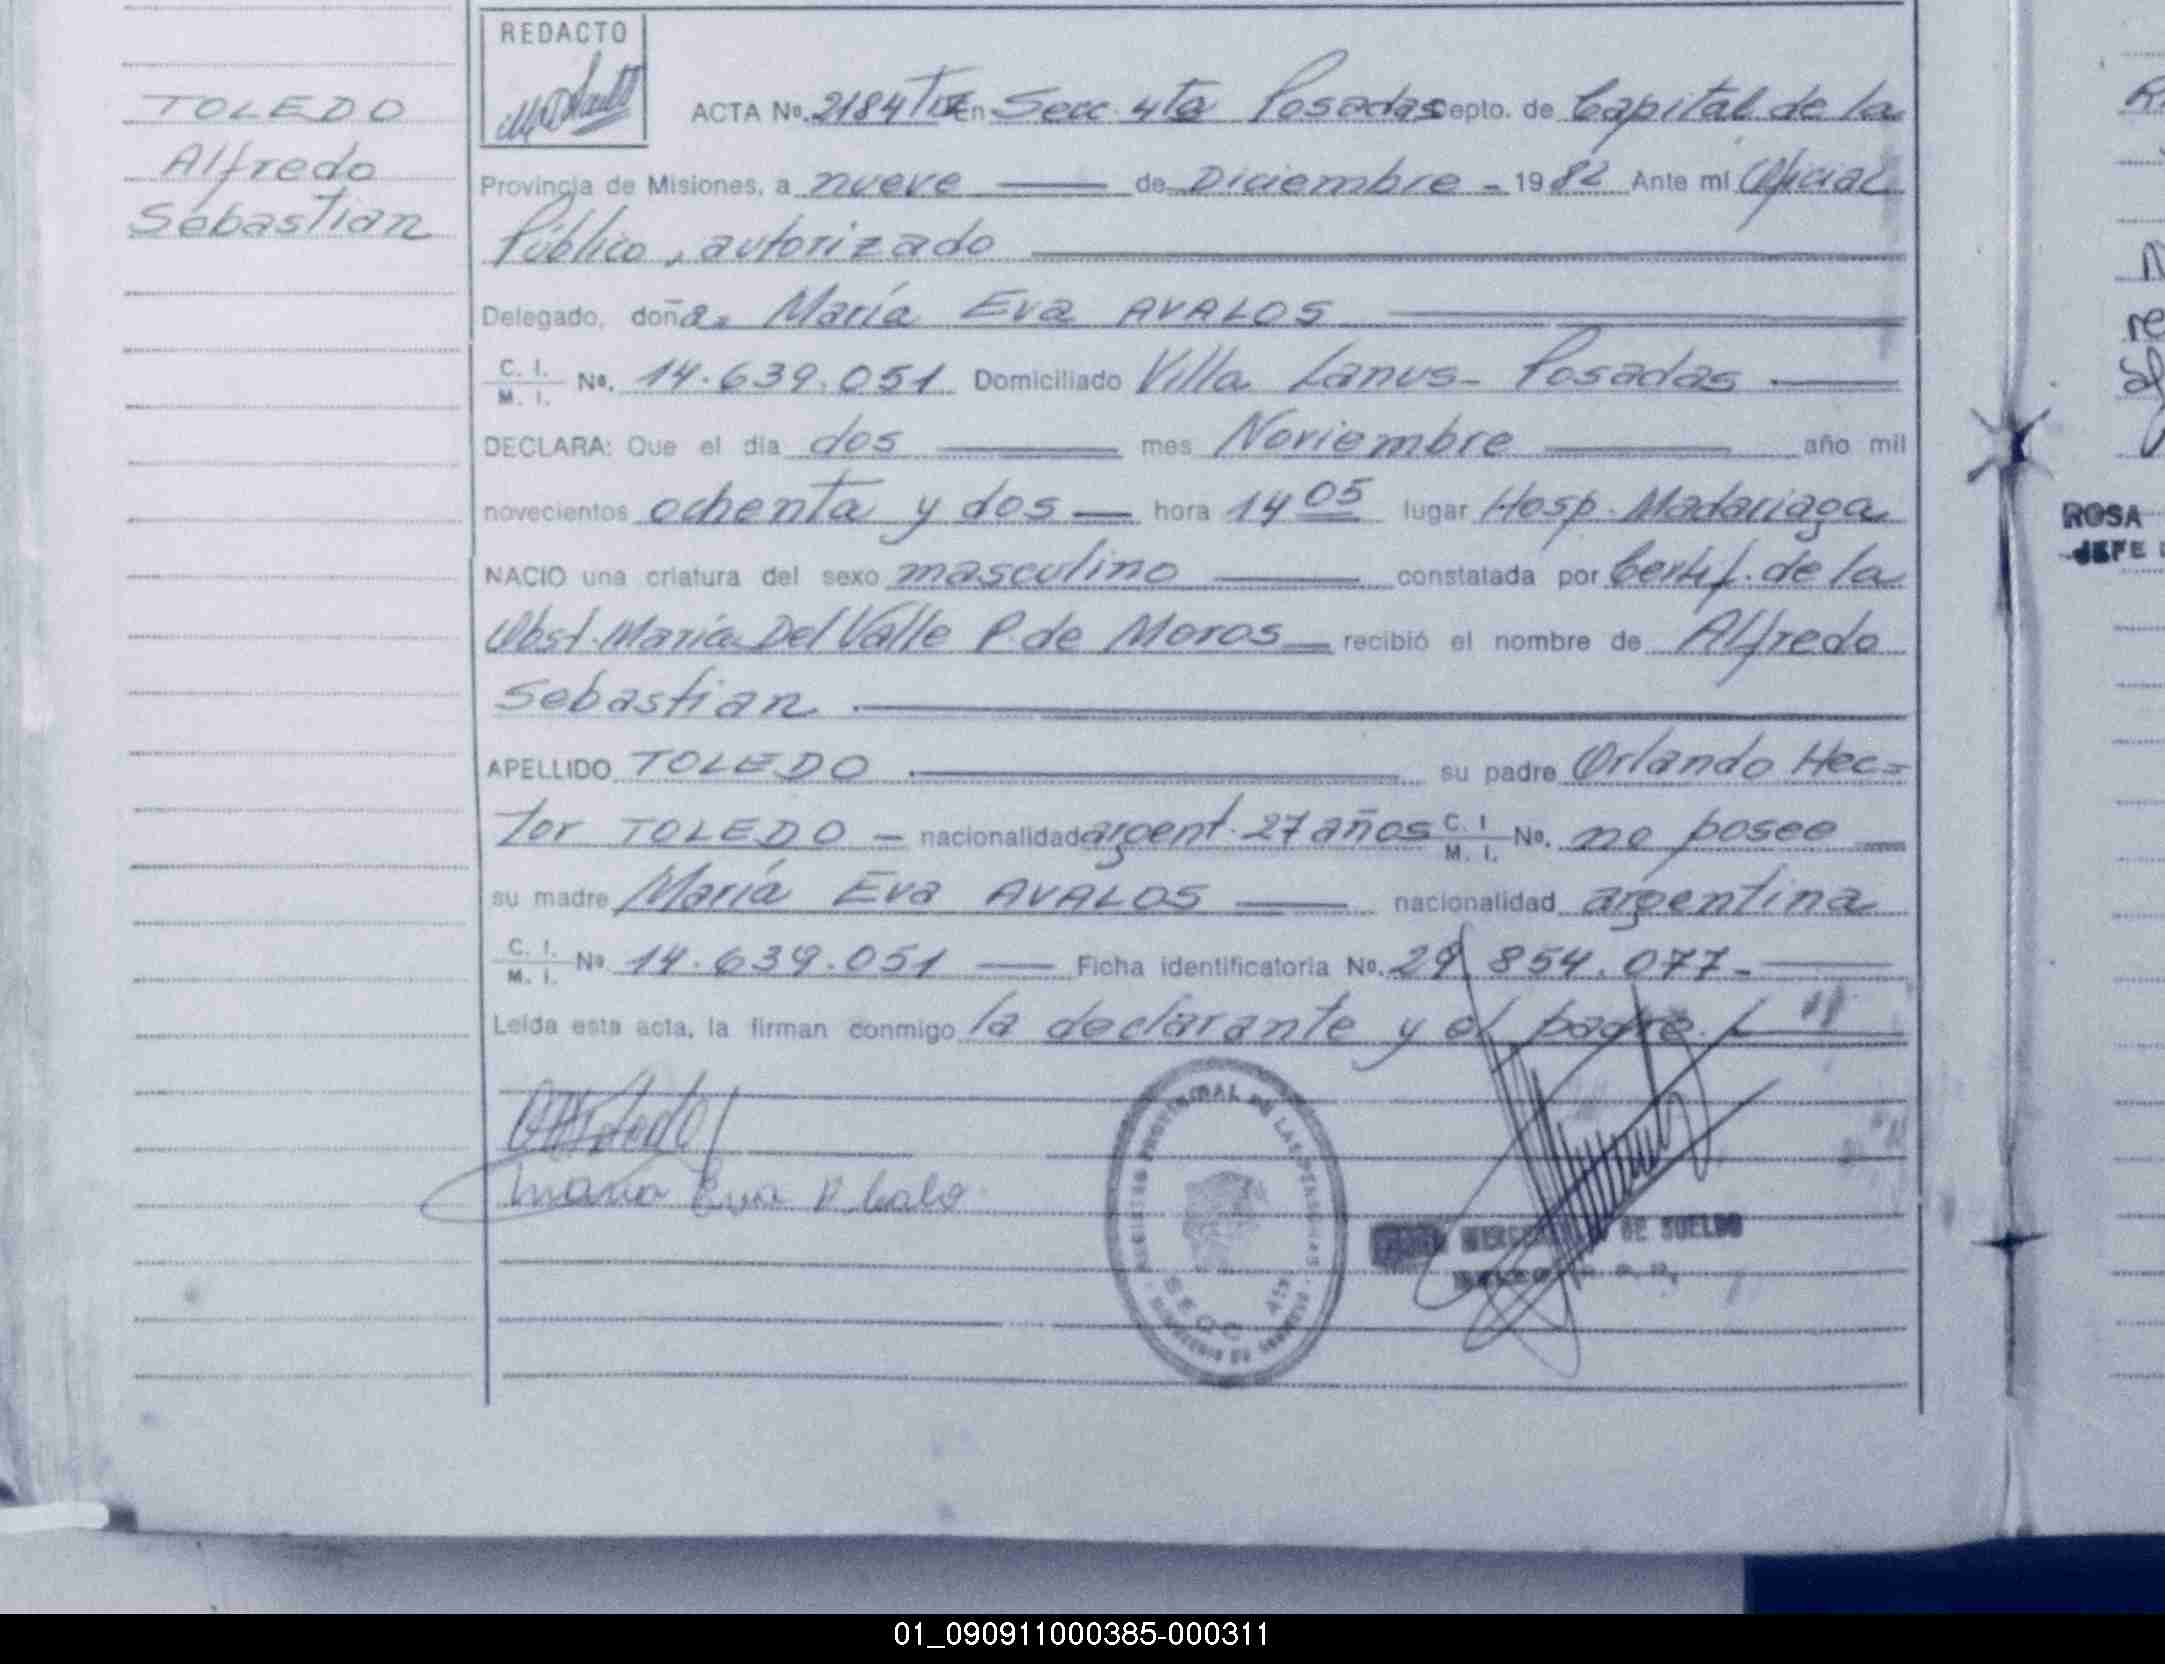 REDACTO
TOLEDO
Alfredo
Sebastian
ACTA No. 2184 TIV En Secc. 4ta Posadas Depto. de Capital de la
Provincia de Misiones, a nueve de Diciembre - 1982 Ante mi Oficial
Público, autorizado
Delegado, doña. María Eva AVALOS
C. I. M. I. No. 14.639.051 Domiciliado Villa Lanus - Posadas
DECLARA: Que el dia dos mes Noviembre año mil
novecientos ochenta y dos hora 14 05 lugar Hosp. Madariaga
NACIO una criatura del sexo masculino constatada por Certif. de la
Obst. María Del Valle P. de Moros recibió el nombre de Alfredo
Sebastian
APELLIDO TOLEDO su padre Orlando Hec=
tor TOLEDO - nacionalidad argent. 27 años C. I M. I. No. no posee
su madre María Eva AVALOS nacionalidad argentina
C. I. M. I. No 14.639.051 Ficha identificatoria No. 29 854.077-
Leída esta acta, la firman conmigo la declarante y el padre.
Maria Eva Abalo
DE SUELDO
ROSA
JEFE
01_090911000385-000311